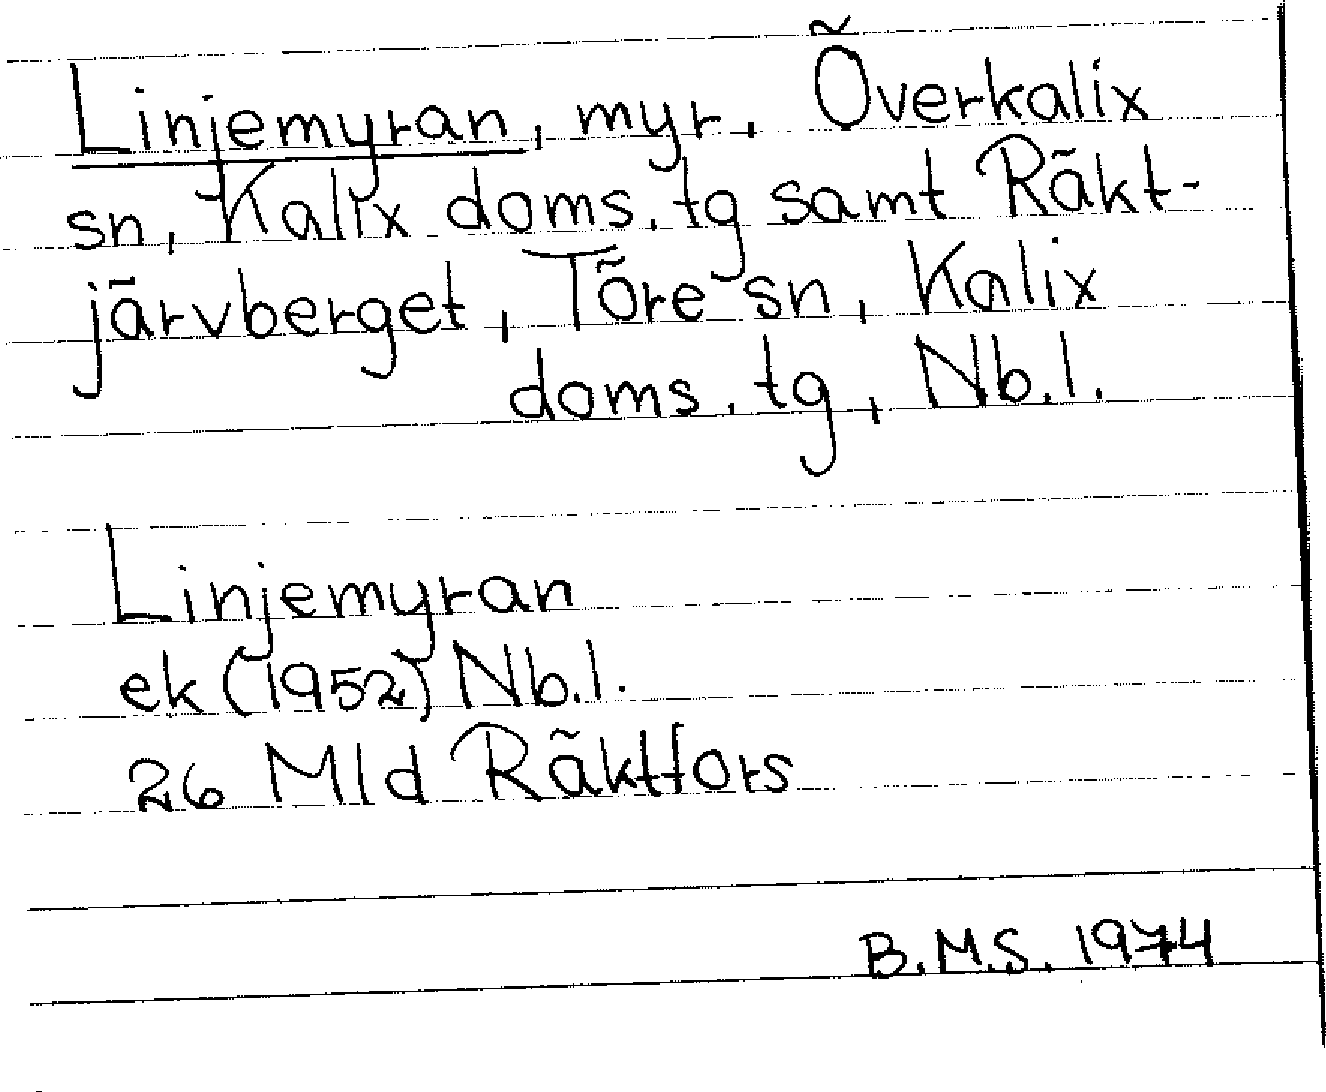 Linjemyran, myr, Överkalix
sn, Kalix doms. tg samt Räkt-
järvberget, Töre sn, Kalix
doms. tg, Nb.l.
Linjemyran
ek (1952) Nb.l.
26 Mld Räktfors
B.M.S. 1974